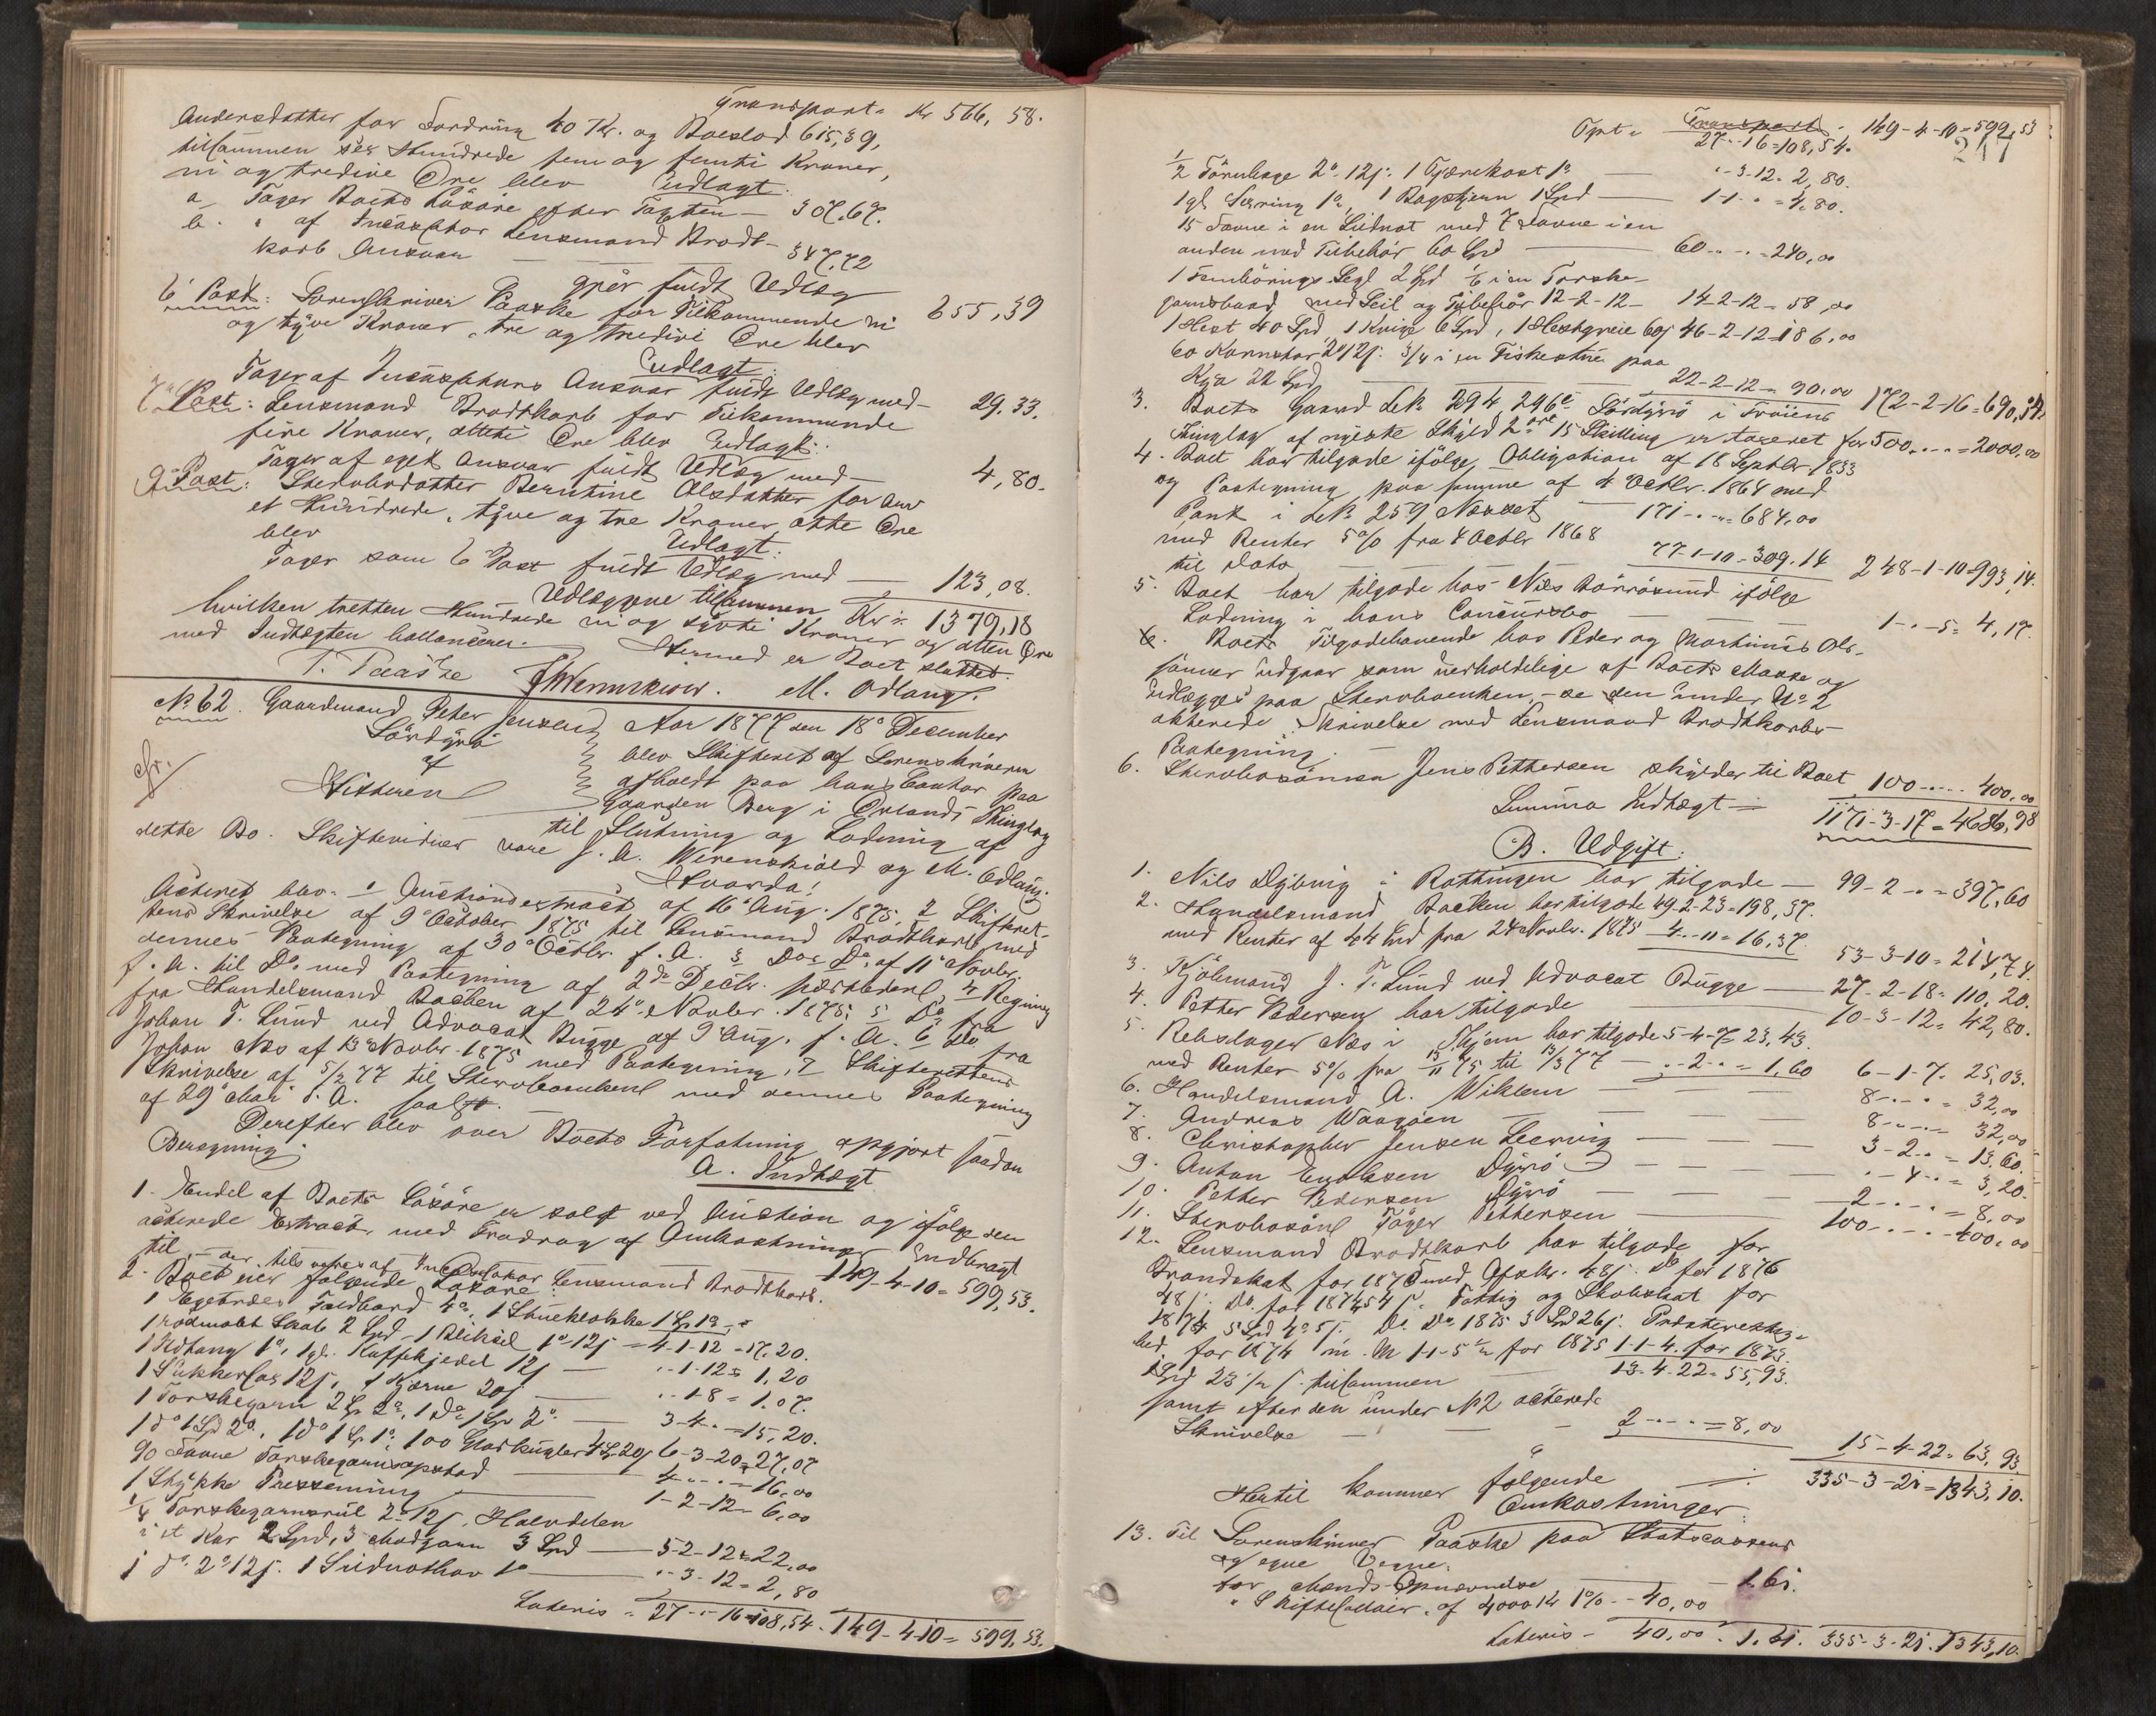 Transport = Kr 566, 58.
Andersdatter for Fordring 40 Kr. og Boeslod 615,39,
tilsammen sex Hundrede fem og femti Kroner,
ni og tredive Øre blev Udlagt:
a, Tager Boets Løsøre efter Taxten — 307.67.
b. " af Incassator Lensmand Brodt-
korb Ansvar — 347.72
gjør fuldt Udlæg 655,39
6' Post: Sorenskriver Paaske for Tilkommende ni
og tyve Kroner, tre og tredive Øre blev
Udlagt:
Tager af Incassators Ansvar fuldt Udlæg med — 29.33.
7de Post: Lensmand Brodtkorb for Tilkommende
fire Kroner, otteti Øre blev Udlagt:
Tager af eget Ansvar fuldt Udlæg med — 4,80.
9' Post: Stervbodatter Berntine Olsdatter for Arv
et Hundrede, tyve og tre Kroner otte Øre
blev Udlagt:
Tager som 6 Post fuldt Udlæg med — 123,08.
Udlæggene tilsammen Kr = 1379,18
hvilken tretten Hundrede ni og sytti Kroner og atten Øre
med Indtægten ballancerer. Hermed er Boet sluttet.
T. Paaske M. Odlaug.
No 62. Gaardmand Peter Jensen Aar 1877 den 18de December
Sørdyrø blev Skifteret af Sorenskriveren
af afholdt paa hans Contor paa
Hitteren Gaarden Berg i Ørlands Thinglag
til Slutning og Lodning af
dette Bo. Skiftevidner vare J. A. Werenskiold og M. Odlaug.
Hvorda!
Acteret blev: 1 Auctionsextract af 16' Aug. 1875, 2 Skifteret-
tens Skrivelse af 9' October 1875 til Lensmand Brodtkorb med
dennes Paategning af 30' Octbr. f. A. 3 Dos Do af 11' Novbr.
f. A. til Do med Paategning af 2de Decbr. næstefter, 4 Regning
fra Handelsmand Backen af 24' Novbr. 1875, 5 Do fra
Johan T. Lund ved Advocat Bugge af 9' Aug. f. A. 6 Do fra
Johan Næs af 13' Novbr. 1875 med Paategning, 7 Skifterettens
Skrivelse af 5/2 77 til Stervboenken med dennes Paategning
af 29' Mai d. A.
Derefter blev over Boets Forfatning opgjort saadan
Beregning:
A. Indtægt
1. Endel af Boets Løsøre er solgt ved Auction og ifølge den
acterede Extract, med Fradrag af Omkostninger indbragt
til, — der tilsvares af Incassator Lensmand Brodtkorb. 149-4-10 = 599,53.
2. Boet eier følgende Løsøre:
1 Foldbord 4o, 1 Stueklokke 1 Sp 1o
1 rødmalt Skab 2 Spd — 1 1o-12s = 4-1-12 = 17.20.
1 Ildtang 1o, 1 gl. Kaffekjedel 12s — " 1-12 = 1,20
1 12s, 1 Kjærne 20s — " 1-8 = 1.07.
1 Torskegarn 2 Sp 2o, 1 Do 1 Sp 2o — 3-4- = 15,20.
1 do 1 Sp 2o, 1 do 1 Sp 1o, 100 Glaskugler 4 Sp 20s 6-3-20 = 27,07
90 Favne — 4--- = 16,00
1 Stykke Pressenning — 1-2-12 = 6,00
1/4 2-12s, Halvdelen
i et Kar 2 Spd, 3 3 Spd — 5-2-12 = 22,00
1 do 2o 12s. 1 1o — " 3-12 = 2,80
Lateris = 27 -- 16 = 108,54. 149-4-10 = 599,53.
Tpt = 149-4-10 = 599,53
27 -- 16 = 108,54.
247
1/2 2o 12s: 1 1o — "-3-12 = 2,80.
1 gl. 1o, 1 1 Spd — 1-1- = 4.80.
15 Favne i en Sildnot med 7 Favne i en
anden med Tilbehør 60 Spd — 60 -- = 240,00
1 Fembørings Segl 2 Spd 1/6 i en Torske-
garnsbaad med Seil og Tilbehør 12-2-12 — 14-2-12 = 58,00
1 Hest 40 Spd, 1 Kvige 6 Spd, 1 60s 46-2-12 = 186,00
60 2o 12s: 3/4 i en paa
22 Spd — 22-2-12 = 90,00 172-2-16 = 690,34.
3. Boets Gaard LNo 294, 296 Sørdyrø i Frøiens
Thinglag af nyeste Skyld 2 Ort 15 Skilling er taxeret for 500 --- = 2000,00
4. Boet har tilgode ifølge Obligation af 18 Septbr 1833
og Paategning paa samme af 4 Octbr. 1864 med
Pant i LNo 259 Næsset — 171 --- = 684,00
med Renter 5% fra 4 Octbr 1868
til Dato — 77-1-10 = 309.14 248-1-10 = 993,14.
5. Boet har tilgode hos Niels Børrøsund ifølge
Lodning i hans Concursbo — 1 -- 5 = 4,17.
6. Boets Tilgodehavende hos Peder og Martinus Ols-
sønner udgaar som uerholdelige af Boets Masse og
udlægges paa Stervboenken, — se den under No 2
acterede Skrivelse med Lensmand Brodtkorbs
Paategning.
6. Stervbosønnen Jens Pettersen skylder til Boet 100 --- 400,00
Summa Indtægt = 1171-3-17 = 4686,98
B. Udgift.
1. Nils Dybvig i Rottingen har tilgode — 99-2 -- = 397,60
2. Handelsmand Backen har tilgode 49-2-23 = 198,37.
med Renter af 44 Spd fra 24 Novbr. 1875 4--11 = 16,37 53-3-10 = 214,74.
3. Kjøbmand J. T. Lund ved Advocat Bugge — 27-2-18 = 110,20.
4. Petter Pedersen har tilgode 10-3-12 = 42,80.
5. Rebslager Næs i Thjem har tilgode 5-4-7 = 23,43.
med Renter 5% fra 13/11 75 til 13/3 77 — "-2-- = 1,60 6-1-7 = 25,03.
6. Handelsmand A. Wiklem — 8 --- = 32,00
7. Andreas — 8 --- = 32,00
8. Christopher Jensen — 3-2-- = 13,60.
9. Anton Enoksen Dyrø — "-4- = 3,20.
10. Petter Pedersen Dyrø — 2 --- = 8,00
11. Stervbosøn Pettersen — 100 --- 400,00
12. Lensmand Brodtkorb har tilgode for
Grundskat for 1875 med Afskr. 48s. Do for 1876
48s. Do for 1874 54s. Fattig og Skoleskat for
1874 5 Spd 4o 5s. Do Do 1875 3 Spd 26s.
for 1874 m. M. 1-1-5 for 1875 1-1-4. for 1873.
1 Spd 23 1/2 s. tilsammen — 13-4-22 = 55,93.
samt efter den under No 2 acterede
Skrivelse — 2 --- = 8,00 15-4-22 = 63,93
335-3-21 = 1343,10.
Hertil kommer følgende
Omkostninger:
13. Til Sorenskriver Paaske paa Statscassens
og egne Vegne.
for Mænds Opnævnelse — 1.61.
" Skiftesalair. af 4000 Kr 1% — 40,00
Lateris — 40,00. 1.61. 335-3-21. 1343,10.